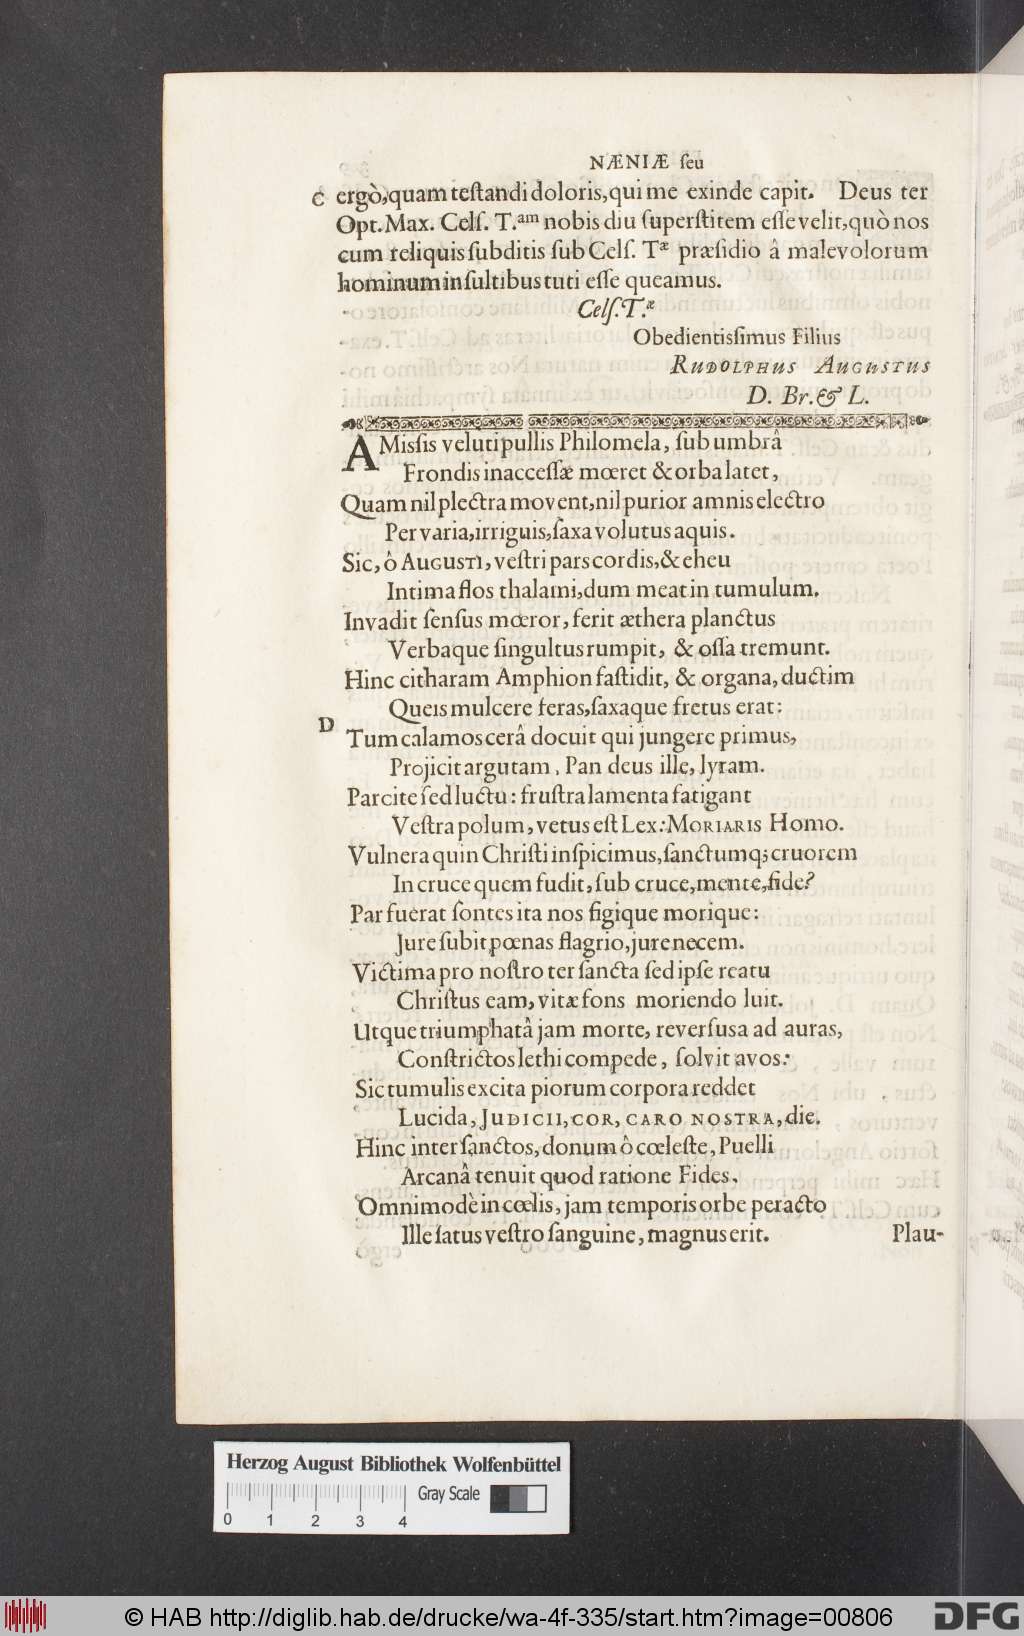 NÆNIÆ ſeu
C ergò, quam teſtandi doloris, qui me exinde capit. Deus ter
Opt. Max. Celſ. T.am nobis diu ſuperſtitem eſſe velit, quò nos
cum reliquis ſubditis ſub Celſ. Tæ præſidio â malevolorum
hominum inſultibus tuti eſſe queamus.
Celſ. T.æ
Obedientissimus Filius
RUDOLPHUS AUGUSTUS
D. Br. & L.
AMissis veluti pullis Philomela, ſub umbrâ
Frondis inacceſſæ mœret & orba latet,
Quam nil plectra movent, nil purior amnis electro
Per varia, irriguis, ſaxa volutus aquis.
Sic, ô AUGUSTI, veſtri pars cordis, & eheu
Intima flos thalami, dum meat in tumulum.
Invadit ſenſus mœror, ferit æthera planctus
Verbaque ſingultus rumpit, & oſſa tremunt.
Hinc citharam Amphion faſtidit, & organa, ductim
Queis mulcere feras, ſaxaque fretus erat:
D Tum calamos cerâ docuit qui jungere primus,
Projicit argutam, Pan deus ille, lyram.
Parcite ſed luctu: fruſtra lamenta fatigant
Veſtra polum, vetus eſt Lex: MORIARIS Homo.
Vulnera quin Chriſti inſpicimus, ſanctumq; cruorem
In cruce quem fudit, ſub cruce, mente, fide?
Par fuerat ſontes ita nos figique morique:
Jure ſubit pœnas flagrio, jure necem.
Victima pro noſtro ter ſancta ſed ipſe reatu
Chriſtus eam, vitæ fons moriendo luit.
Utque triumphatâ jam morte, reverſus ad auras,
Conſtrictos lethi compede, ſolvit avos:
Sic tumulis excita piorum corpora reddet
Lucida, JUDICII, COR, CARO NOSTRA, die.
Hinc inter ſanctos, donum ô cœleſte, Puelli
Arcanâ tenuit quod ratione Fides,
Omnimodè in cœlis, jam temporis orbe peracto
Ille ſatus veſtro ſanguine, magnus erit. Plau-
Herzog August Bibliothek Wolfenbüttel
Gray Scale
0 1 2 3 4
© HAB http://diglib.hab.de/drucke/wa-4f-335/start.htm?image=00806
DFG